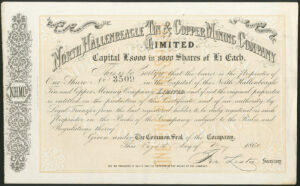 NORTH HALLENBEAGLE TIN & COPPER MINING COMPANY
LIMITED.
Capital £8000 in 8000 Shares of £1 Each.
This is to Certify that the bearer is the Proprietor of
One Share No 3509 in the Capital of the North Hallenbeagle
Tin and Copper Mining Company LIMITED and if not the original proprietor
is entitled, on the production of this Certificate and of an authority by
Legal Transfer from the last registered owner to be duly registered in said
Proprietor in the Books of the Company subject to the Rules and
Regulations thereof.
Given under The Common Seal of the Company,
This day of 186
Secretary
NHMCo